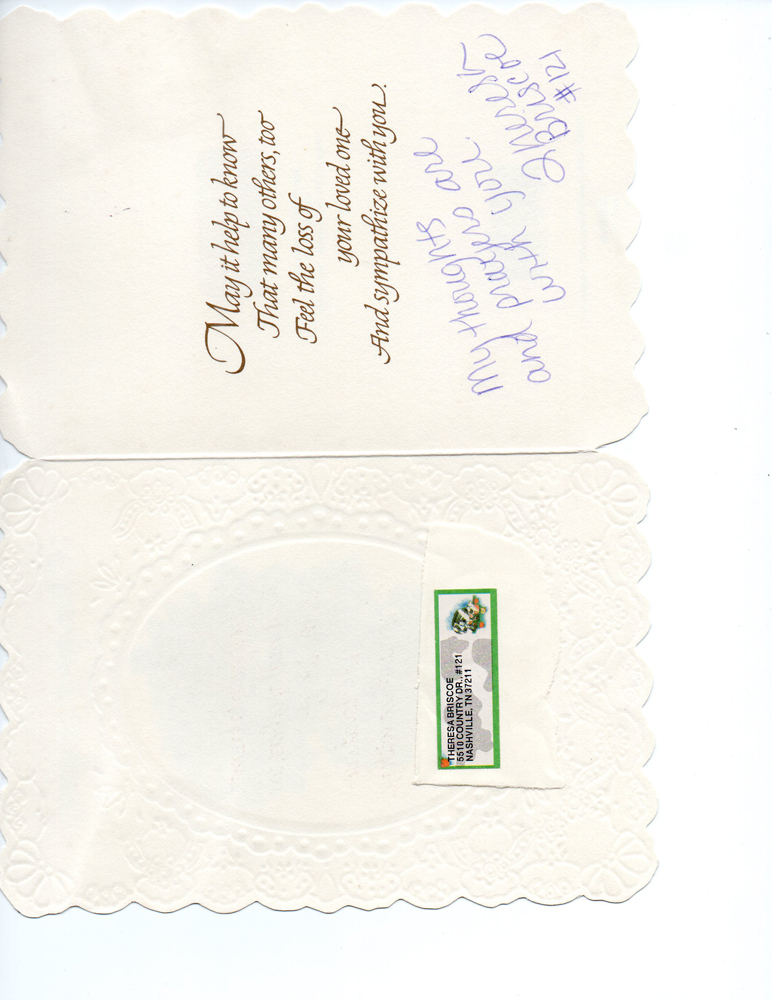 May it help to know
That many others, too
Feel the loss of
your loved one
And sympathize with you.
My thoughts are
and prayers are
with you.
Theresa
Briscoe
#121
THERESA BRISCOE
5510 COUNTRY DR., #121
NASHVILLE, TN 37211